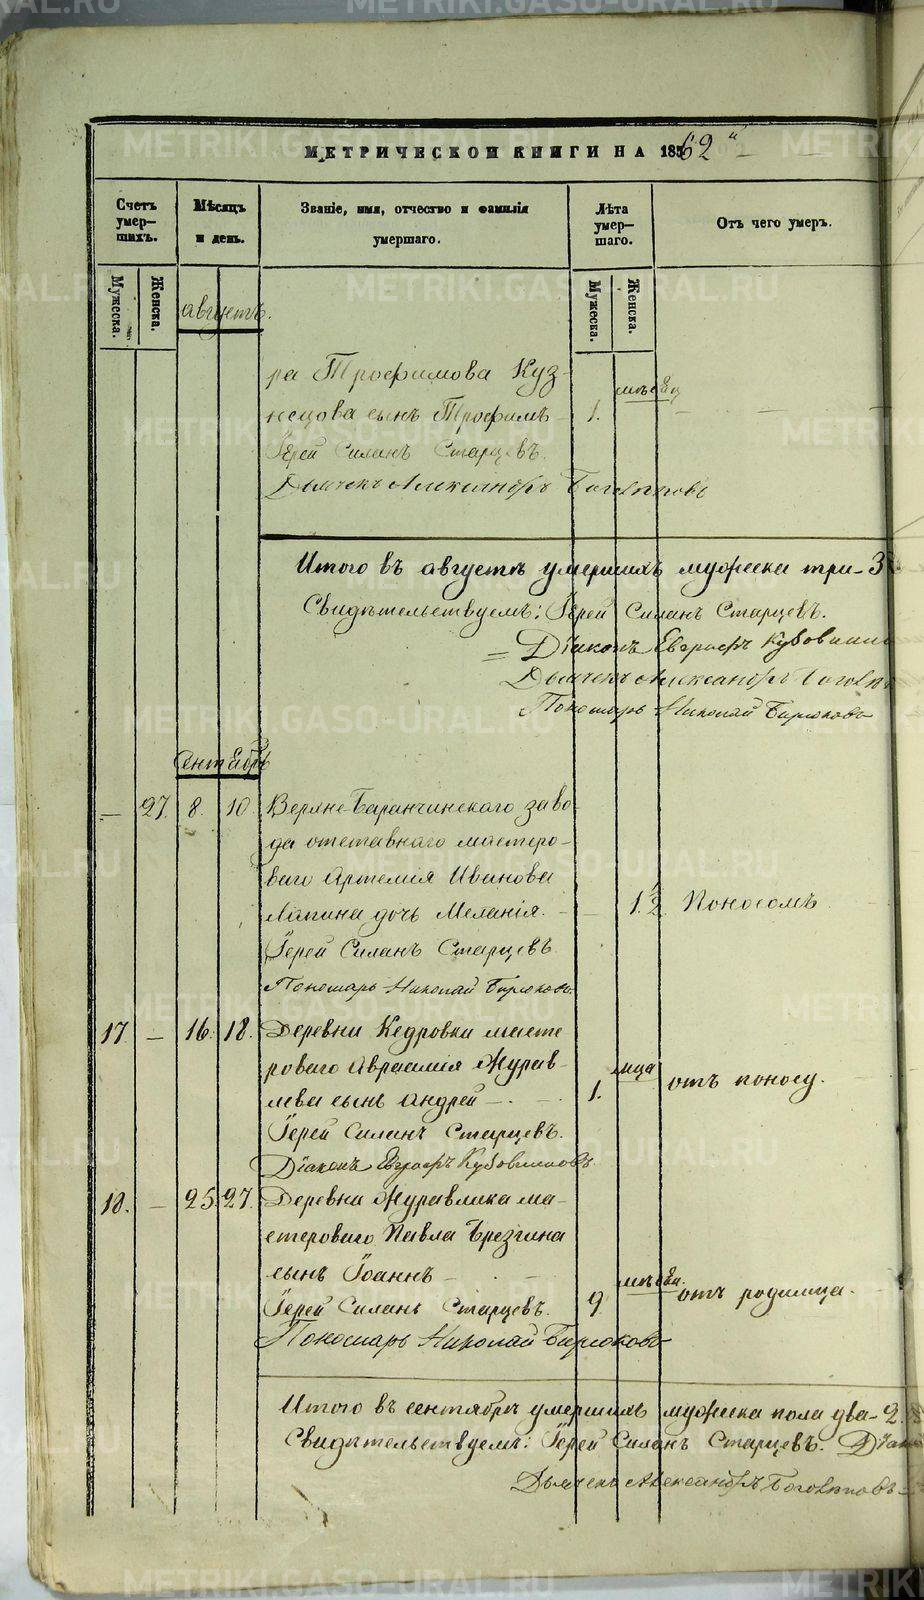 МЕТРИЧЕСКОЙ КНИГИ НА 1862 й
Счетъ умер-
шихъ.
Мѣсяцъ
и день.
Званіе, имя, отчество и фамилія
умершаго.
Лѣта
умер-
шаго.
Отъ чего умеръ.
Мужеска.
Женска.
Мужеска.
Женска.
августъ.
ра Трофимова Куз-
нецова сынъ Трофимъ 1. мѣсяц
Іерей Силанъ Старцевъ.
Дьячекъ Александръ
Итого въ августѣ умершихъ мужеска три-3
Свидѣтельствуемъ: Іерей Силанъ Старцевъ.
Діаконъ Евграфъ
Дьячекъ Александръ
Пономарь Николай Бирюковъ
Сентябрь
— 27. 8. 10. Верхне-Баранчинскаго заво-
да отставнаго мастеро-
ваго Артемія Иванова
Лапина дочь Меланія. — 1 1/2 Поносомъ
Іерей Силанъ Старцевъ
Пономарь Николай Бирюковъ.
17 — 16. 18. Деревни Кедровки масте
роваго Авраамія Журав-
лева сынъ Андрей — 1. мца отъ поносу.
Іерей Силанъ Старцевъ.
Діаконъ Евграфъ
18. — 25. 27. Деревни Журавлика ма-
стероваго Павла Брезгина
сынъ Іоаннъ
Іерей Силанъ Старцевъ. 9 мѣсяц. отъ родимца.
Пономарь Николай Бирюковъ
Итого въ сентябрѣ умершихъ мужеска пола два-2.
Свидѣтельствуемъ: Іерей Силанъ Старцевъ.
Дьячекъ Александръ
METRIKI.GASO-URAL.RU